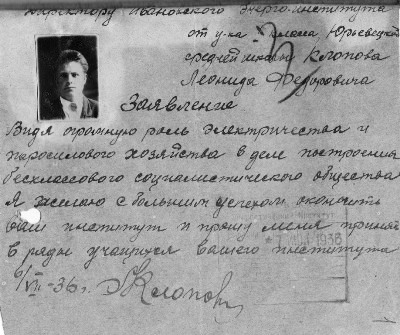 Директору Ивановского Энерго-института
от у-ка X класса Юрьевецкой
средней школы Клопова
Леонида Федоровича
Заявление
Видя огромную роль электричества и
паросилового хозяйства в деле построения
бесклассового социалистического общества
Я желаю с большим успехом окончить
ваш институт и прошу меня принять
в ряды учащихся вашего института
1938
VII-36г. Клопов